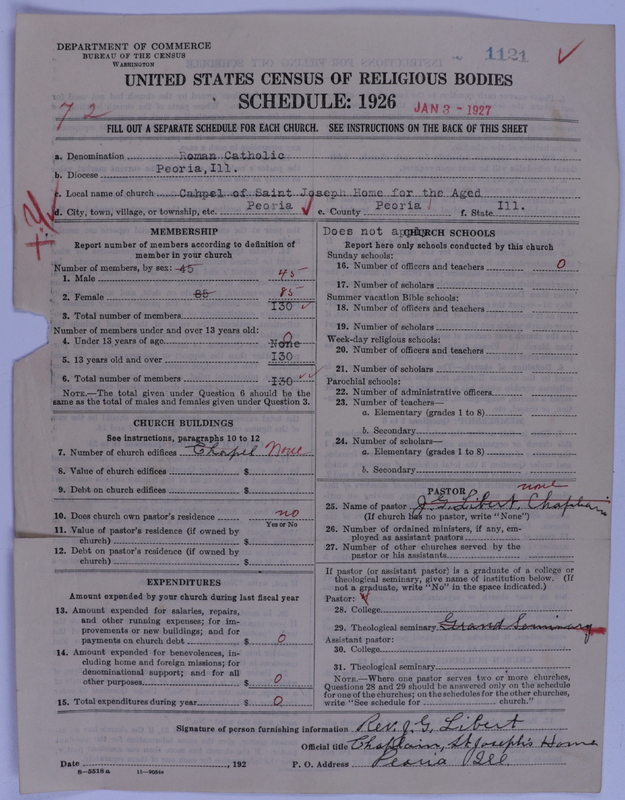 DEPARTMENT OF COMMERCE
BUREAU OF THE CENSUS
WASHINGTON
1121
UNITED STATES CENSUS OF RELIGIOUS BODIES
72
SCHEDULE: 1926 JAN 3 - 1927
FILL OUT A SEPARATE SCHEDULE FOR EACH CHURCH. SEE INSTRUCTIONS ON THE BACK OF THIS SHEET
a. Denomination Roman Catholic
b. Diocese Peoria, Ill.
c. Local name of church Cahpel of Saint Joseph Home for the Aged
d. City, town, village, or township, etc. Peoria e. County Peoria f. State Ill.
MEMBERSHIP
Report number of members according to definition of
member in your church
Number of members, by sex: 45
1. Male 45
2. Female 85 85
3. Total number of members I30
Number of members under and over 13 years old:
4. Under 13 years of age None 0
5. 13 years old and over I30
6. Total number of members I30
NOTE.—The total given under Question 6 should be
the same as the total of males and females given under Question 3.
CHURCH BUILDINGS
See instructions, paragraphs 10 to 12
7. Number of church edifices Chapel None
8. Value of church edifices $
9. Debt on church edifices $
10. Does church own pastor's residence no
Yes or No
11. Value of pastor's residence (if owned by
church) $
12. Debt on pastor's residence (if owned by
church) $
EXPENDITURES
Amount expended by your church during last fiscal year
13. Amount expended for salaries, repairs,
and other running expenses; for im-
provements or new buildings; and for
payments on church debt $ 0
14. Amount expended for benevolences, in-
cluding home and foreign missions; for
denominational support; and for all
other purposes $ 0
15. Total expenditures during year $ 0
Does not apply CHURCH SCHOOLS
Report here only schools conducted by this church
Sunday schools:
16. Number of officers and teachers 0
17. Number of scholars
Summer vacation Bible schools:
18. Number of officers and teachers
19. Number of scholars
Week-day religious schools:
20. Number of officers and teachers
21. Number of scholars
Parochial schools:
22. Number of administrative officers
23. Number of teachers—
a. Elementary (grades 1 to 8)
b. Secondary
24. Number of scholars—
a. Elementary (grades 1 to 8)
b. Secondary
PASTOR none
25. Name of pastor J. G. Libert, Chaplain
(If church has no pastor, write "None")
26. Number of ordained ministers, if any, em-
ployed as assistant pastors
27. Number of other churches served by the
pastor or his assistants
If pastor (or assistant pastor) is a graduate of a college or
theological seminary, give name of institution below. (If
not a graduate, write "No" in the space indicated.)
Pastor:
28. College
29. Theological seminary Grand Seminary
Assistant pastor:
30. College
31. Theological seminary
NOTE.—Where one pastor serves two or more churches,
Questions 28 and 29 should be answered only on the schedule
for one of the churches; on the schedules for the other churches,
write "See schedule for church."
Signature of person furnishing information Rev. J. G. Libert
Official title Chaplain, St Joseph's Home
Date , 192 P. O. Address Peoria Ill
8—5518 a